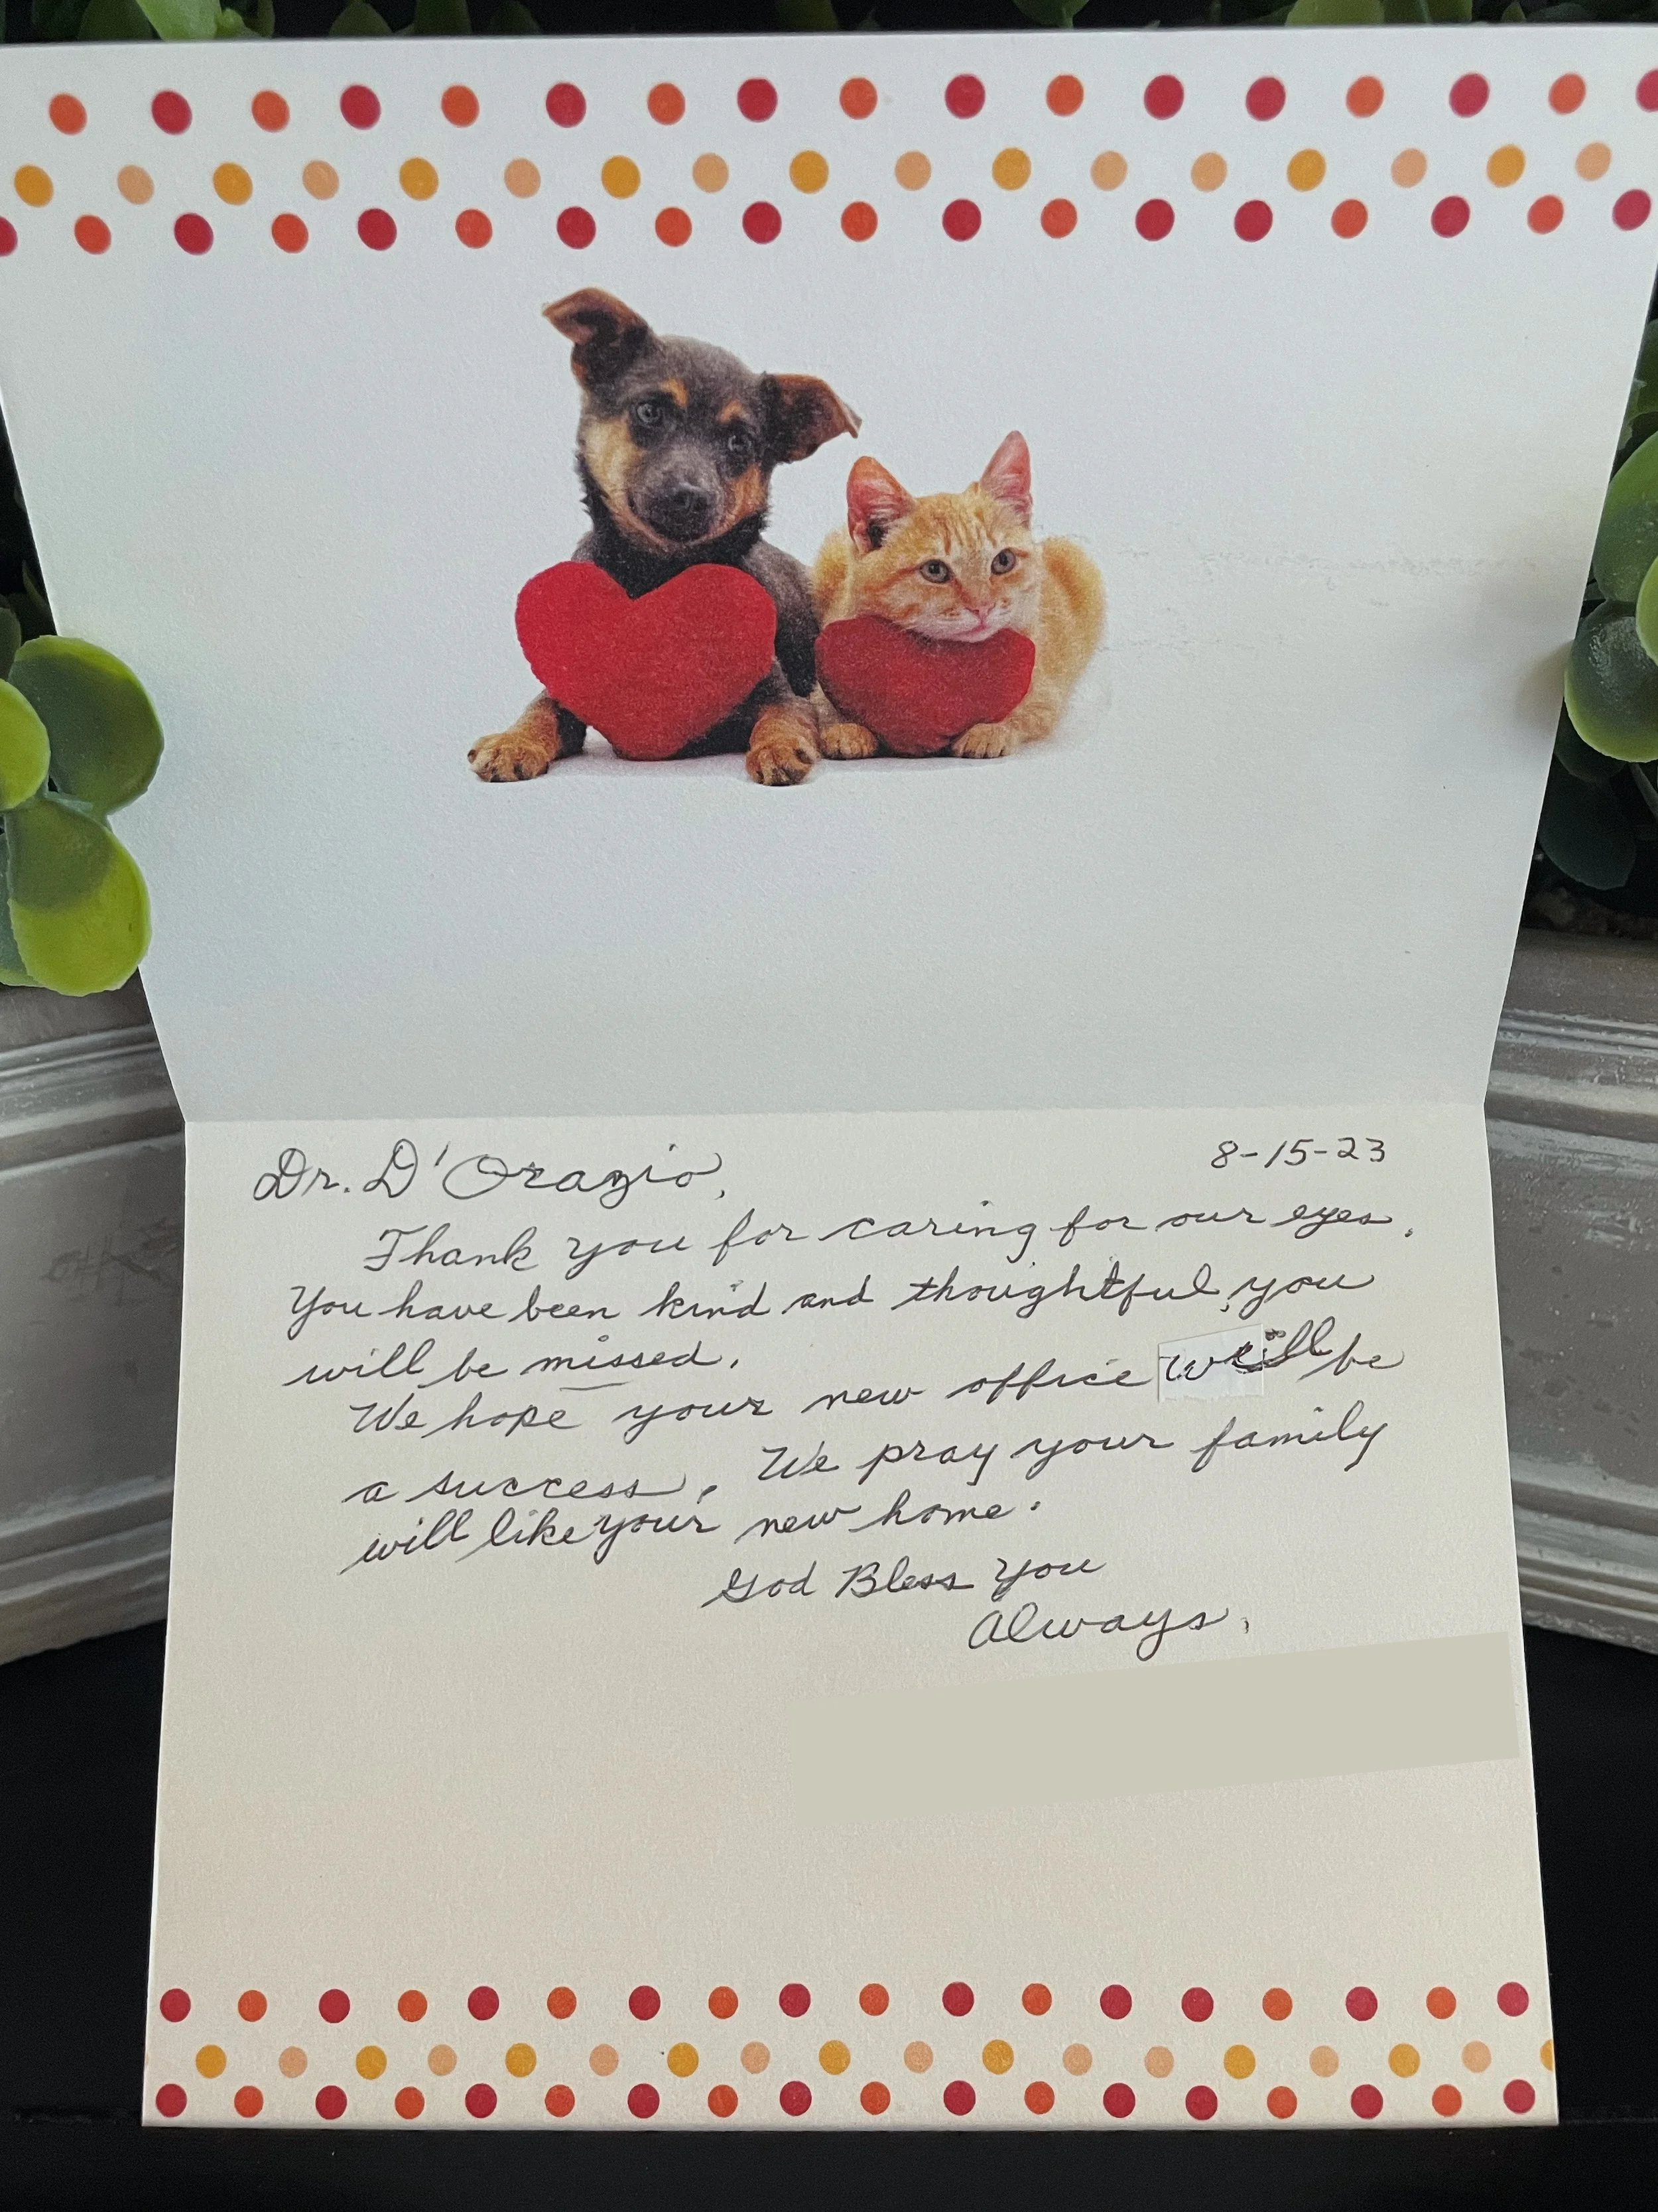 Dr. D'Orazio,
8-15-23
Thank you for caring for our eyes.
You have been kind and thoughtful, you
will be missed.
We hope your new office will be
a success. We pray your family
will like your new home.
God Bless You
Always,